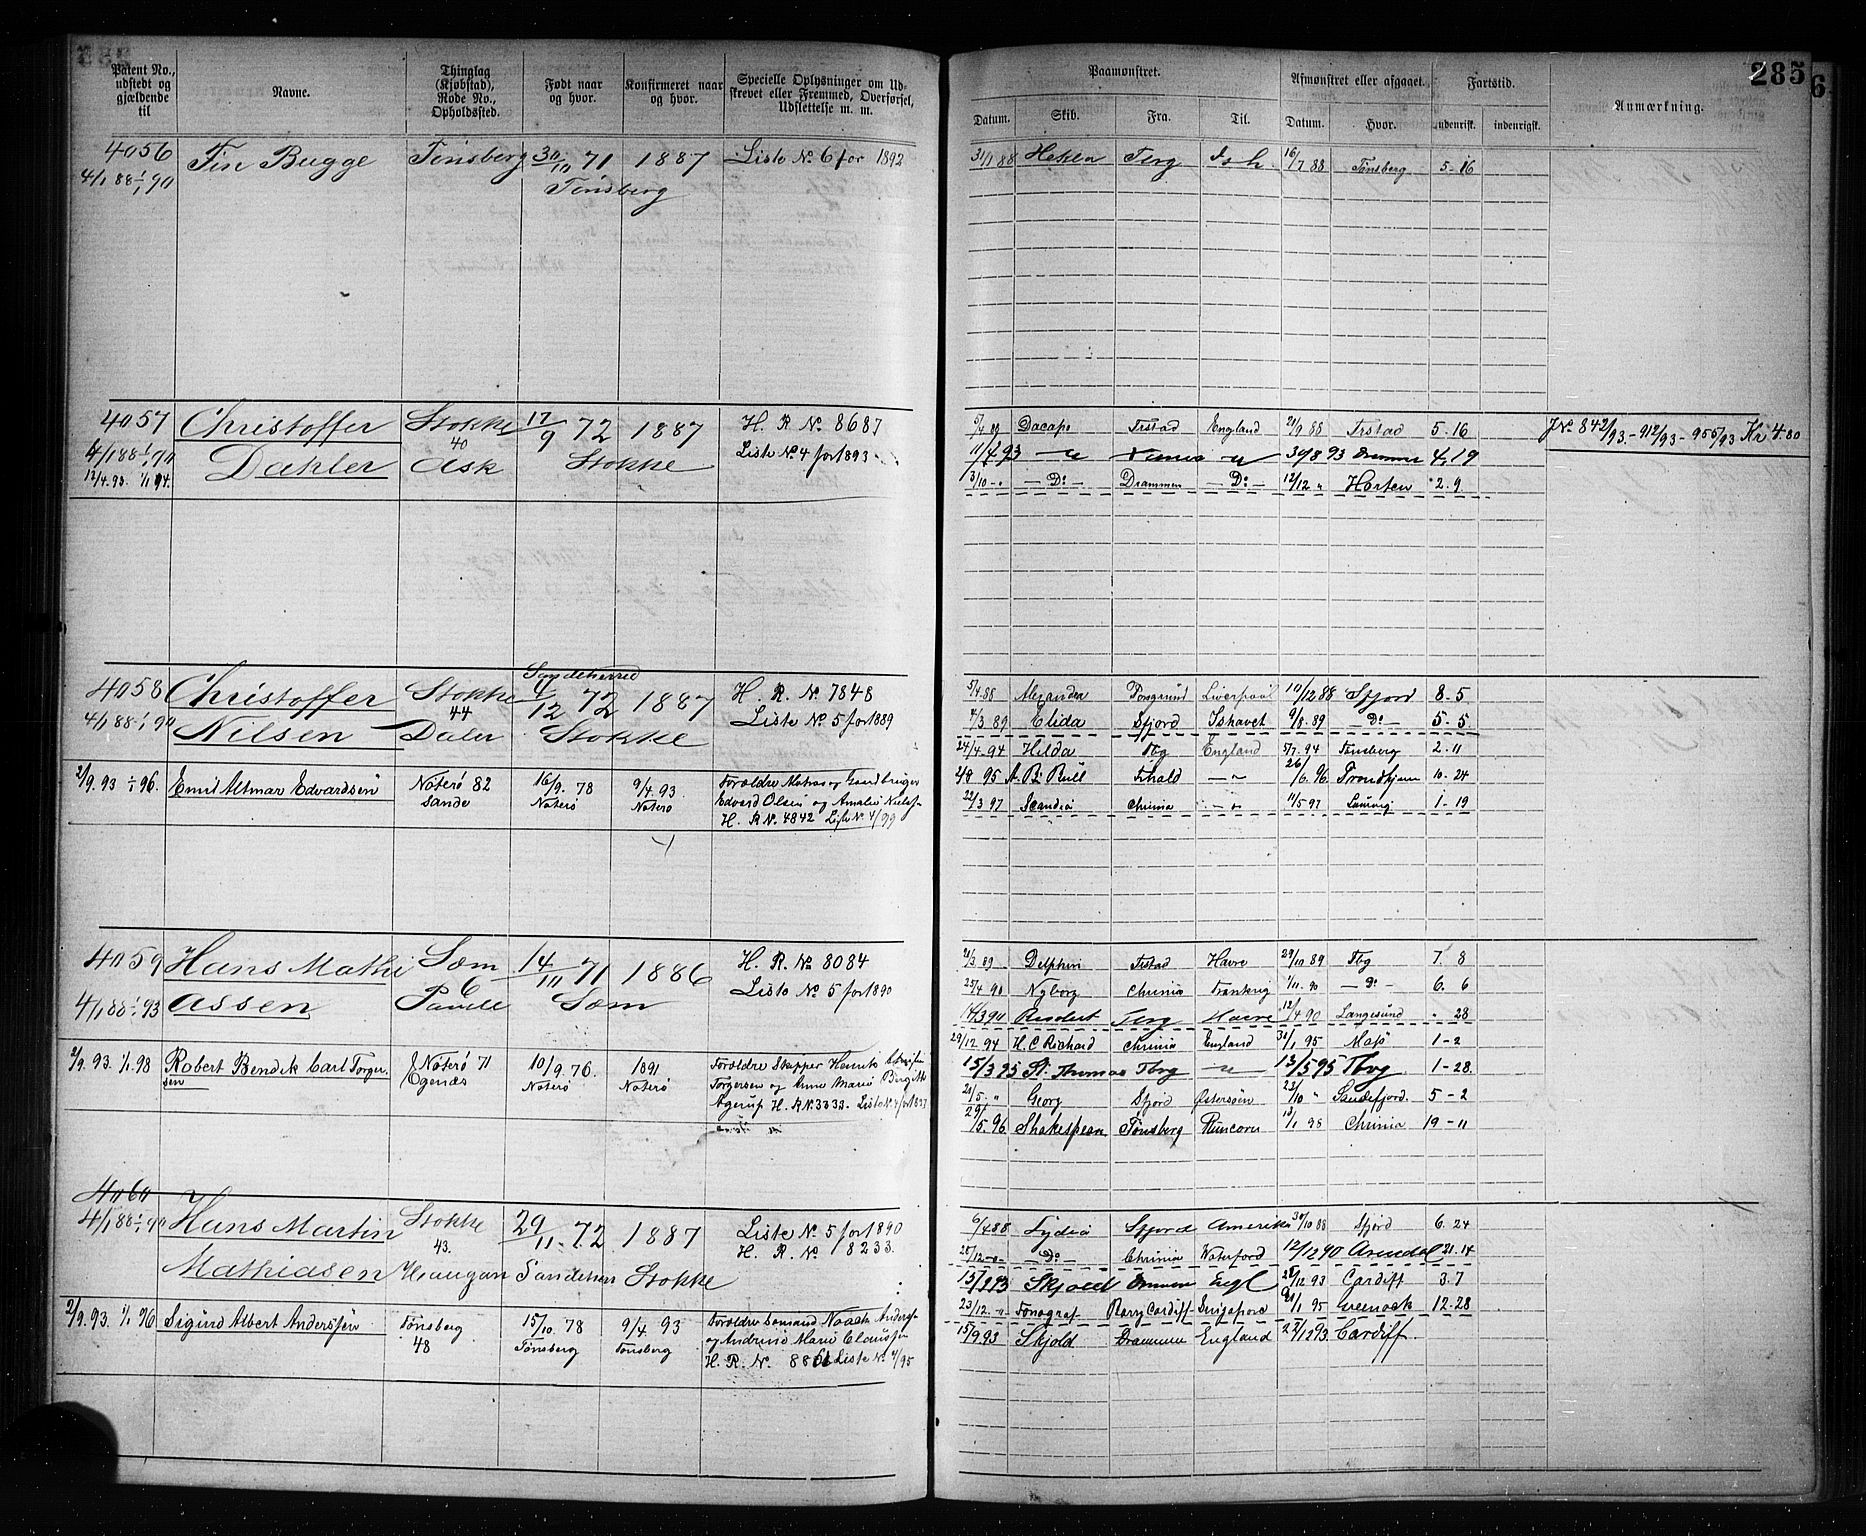 285
6
Patent No., udstedt og gjældende til
Navne.
Thinglag (Kjøbstad), Rode No., Opholdssted.
Født naar og hvor.
Konfirmeret naar og hvor.
Specielle Oplysninger om Udskrevet eller Fremmed, Overførsel, Udslettelse m. m.
Paamønstret.
Afmønstret eller afgaaet.
Fartstid.
Anmærkning.
Datum. Skib. Fra. Til. Datum. Hvor. udenrigsk. indenrigsk.
4056 Fin Bugge Tønsberg 30/10 71 1887 Liste No 6 for 1892
4/1 88 1/1 90 Tønsberg
31/1 88 Hekla Tbrg Ish 16/7 88 Tønsberg 5-16
4057 Christoffer Stokke 17/9 72 1887 H. R No 8687
4/1 88 1/1 90 Dahler 40 Ask Stokke Liste No 4 for 1893
12/4. 93. 1/1 94.
5/4 88 Dacapo Frstad England 21/9 88 Frstad 5-16
11/4 93 30/8 93 Drammen 4,19
3/10 - Do - Drammen - Do - 12/12 " Horten 2.9
J No 842/93 - 912/93 - 955/93 Kr 4.80
4058 Christoffer Stokke Sandeherred 4/12 72 1887 H. R. No 7848
4/1 88 1/1 90 Nilsen 44 Daler Stokke Liste No 5 for 1889
5/4 88 Alexandra Porsgrund Liverpool 10/12 88 Sfjord 8-5
4/3 89 Elida Sfjord Ishavet 9/8 89 - Do - 5-5
24/4. 94 Hilda Tbg England 5/7. 94 Tønsberg 2-11
2/9. 93 1/1 96. Emil Altmar Edvardsen Nøterø 82 Sande 16/9. 78 Nøterø 9/4. 93 Nøterø Forældre Matros og Gaardbruger
Edvard Olsen og Amalie
H. R No. 4842 Liste No 4/99
2/8 95 A. B. Bull Frhald 26/6. 96 Trondhjem 10-24
22/3 97 Scandia Chrinia 11/5 97 Laurvig 1-19
4059 Hans Mathi Sæm 14/11 71 1886 H. R. No 8084
4/1 88 1/1 93 assen 6 Sæm Liste No 5 for 1890
21/3 89 Delphin Frstad Havre 29/10 89 Tbg 7. 8
25/4 90 Nyborg Chrinia Frankrig 1/11. 90 - Do - 6. 6
Tbrg Havre 12/4 90 Langesund " 28
29/12. 94 H. C Richard Chrinia England 31/1 95 1-2
2/9. 93 1/1. 98 Robert Bendik Carl Torgersen J. Nøterø 71 Ogenæs 10/9. 76. Nøterø 1891 Nøterø Forældre Skipper Henrik
Torgersen og Anne Marie
Agerup H. R No 3333. Liste No
15/3 95 St. Thomas Tbg 13/5 95 Tbg 1-28.
21/5. " Georg Sfjord Østersøen 23/10 " Sandefjord. 5-2
29/5. 96 Shakespeare Tønsberg Runcorn 13/1 98 Chrinia 19-11
4060
4/1 88 1/1 90 Hans Martin Stokke 43. 29/11. 72 1887 Liste No 5 for 1890
H. R. No 8233.
Mathiasen Haugan Sandeherr Stokke
6/4 88 Lydia Sfjord Amerika 30/10 88 Sfjord 6. 24
25/12 - Do - Chrinia Waterford 12/12 90 Arendal 21.14
15/9 93 Skjold Drammen Engl 22/12 93 Cardiff 3.7
2/9. 93. 1/1 96 Sigurd Albert Anderssen Tønsberg 48 15/10. 78 Tønsberg 9/4 93 Tønsberg Forældre Sømand
og Andrine Marie
H. R. No. Liste No 4/95
23/12. Fonograf Barry Cardiff Singapore 21/1 95 Greenock 12-28
15/9 93 Skjold Drammen England 22/12 93. Cardiff.